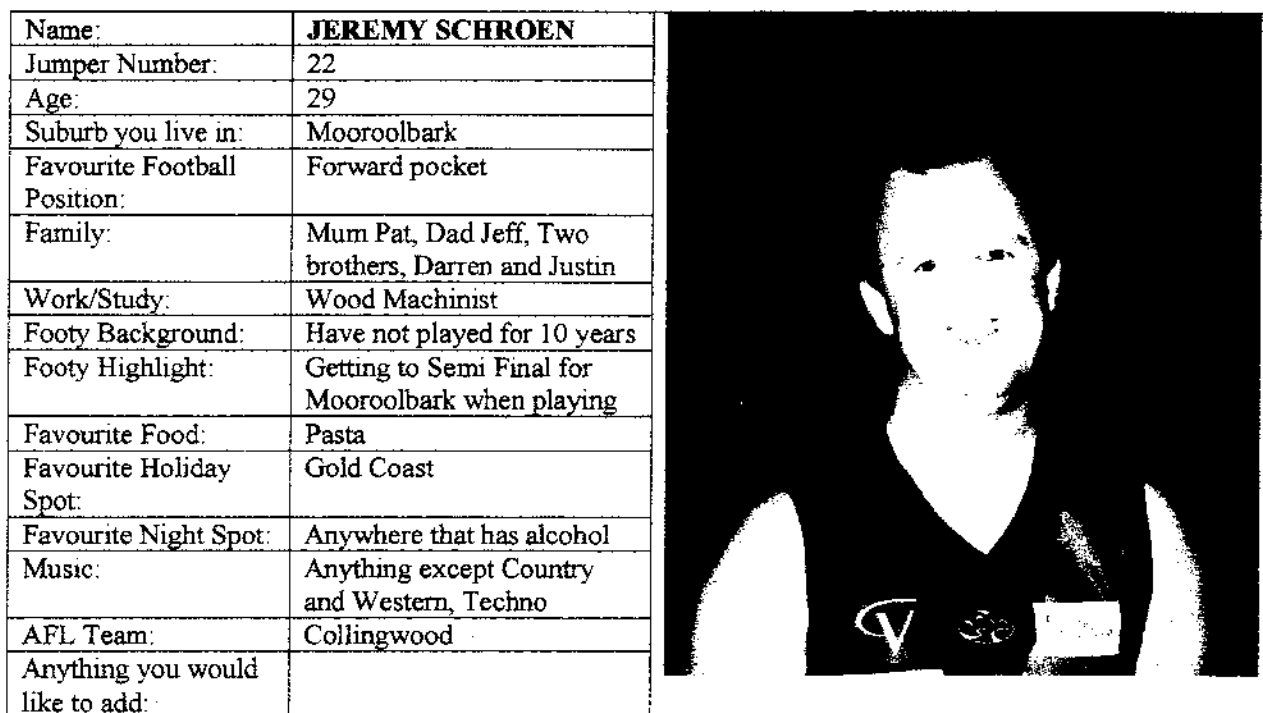 Name: JEREMY SCHROEN
Jumper Number: 22
Age: 29
Suburb you live in: Mooroolbark
Favourite Football Forward pocket
Position:
Family: Mum Pat, Dad Jeff, Two
brothers, Darren and Justin
Work/Study: Wood Machinist
Footy Background: Have not played for 10 years
Footy Highlight: Getting to Semi Final for
Mooroolbark when playing
Favourite Food: Pasta
Favourite Holiday Gold Coast
Spot:
Favourite Night Spot: Anywhere that has alcohol
Music: Anything except Country
and Western, Techno
AFL Team: Collingwood
Anything you would
like to add:
V